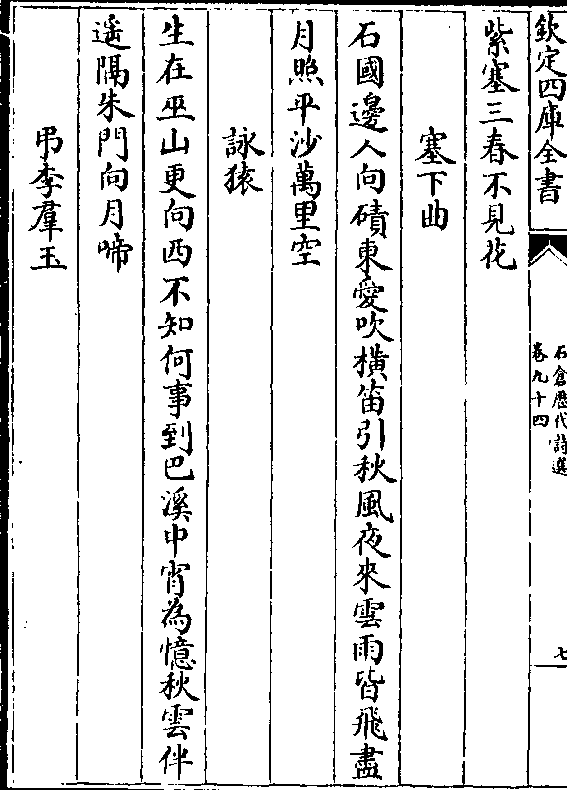 欽定四庫全書
石倉歷代詩選
卷九十四
七
紫塞三春不見花
塞下曲
石國邊人向磧東愛吹橫笛引秋風夜來雲雨皆飛盡
月照平沙萬里空
詠猿
生在巫山更向西不知何事到巴溪中宵為憶秋雲伴
遥隔朱門向月啼
弔李羣玉